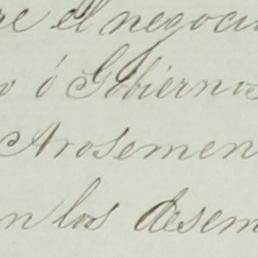 re el negoci
o ó Gobiernos
Arosemen
n los desem